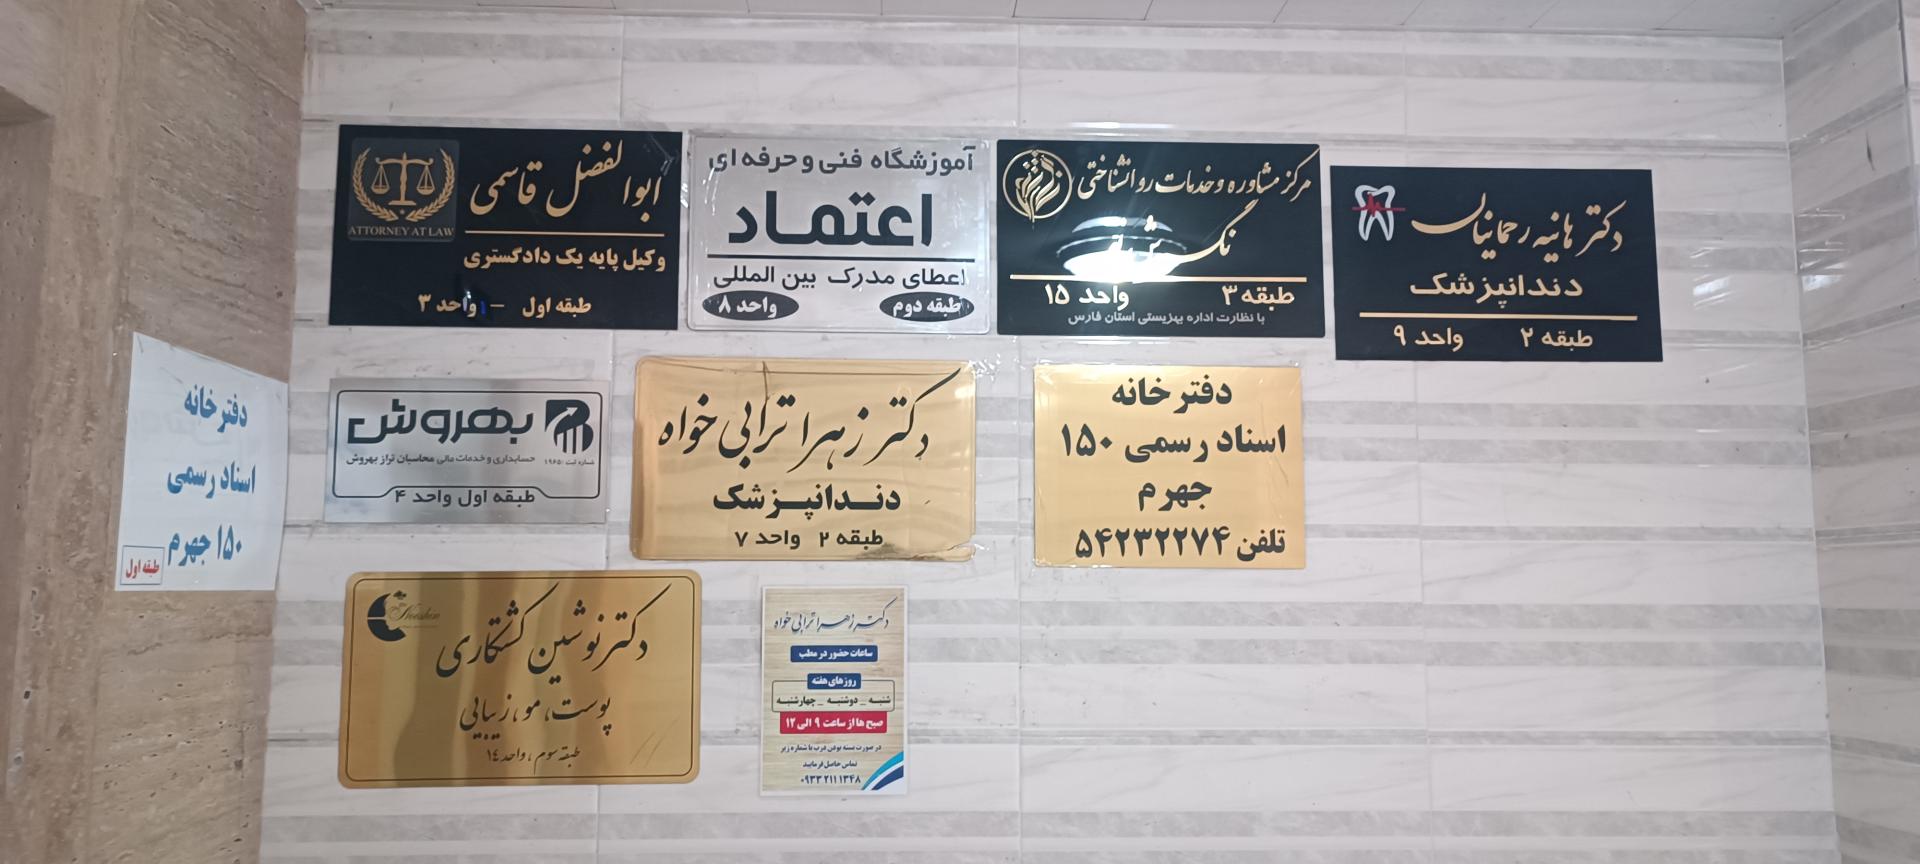 ابوالفضل قاسمی
ATTORNEY AT LAW
وکیل پایه یک دادگستری
طبقه اول - واحد ۳
آموزشگاه فنی و حرفه ای
اعتماد
اعطای مدرک بین المللی
طبقه دوم واحد ۸
مرکز مشاوره و خدمات روانشناختی
طبقه ۳ واحد ۱۵
با نظارت اداره بهزیستی استان فارس
دکتر هانیه رحمانیان
دندانپزشک
طبقه ۲ واحد ۹
دفترخانه
اسناد رسمی
۱۵۰ جهرم
طبقه اول
بهروش
شماره ثبت: ۱۹۶۵
حسابداری و خدمات مالی محاسبان تراز بهروش
طبقه اول واحد ۴
دکتر زهرا ترابی خواه
دندانپزشک
طبقه ۲ واحد ۷
دفترخانه
اسناد رسمی ۱۵۰
جهرم
تلفن ۵۴۲۳۲۲۷۴
Nooshin
دکتر نوشین کشتکاری
پوست، مو، زیبایی
طبقه سوم، واحد ۱٤
دکتر زهرا ترابی خواه
ساعات حضور در مطب
روزهای هفته
شنبه _ دوشنبه _ چهارشنبه
صبح ها از ساعت ۹ الی ۱۲
در صورت بسته بودن درب با شماره زیر
تماس حاصل فرمایید
۰۹۳۳۲۱۱۱۳۴۸